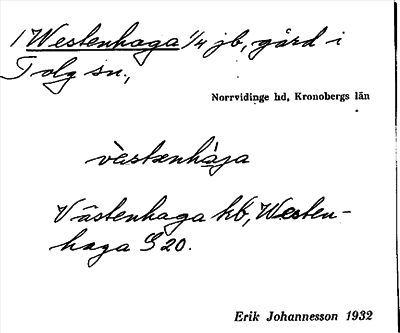 1 Westenhaga 1/4 jb, gård i
Tolg sn.,
Norrvidinge hd, Kronobergs län
vèstænhàga
Västenhaga kb, Westen-
haga G 20.
Erik Johannesson 1932